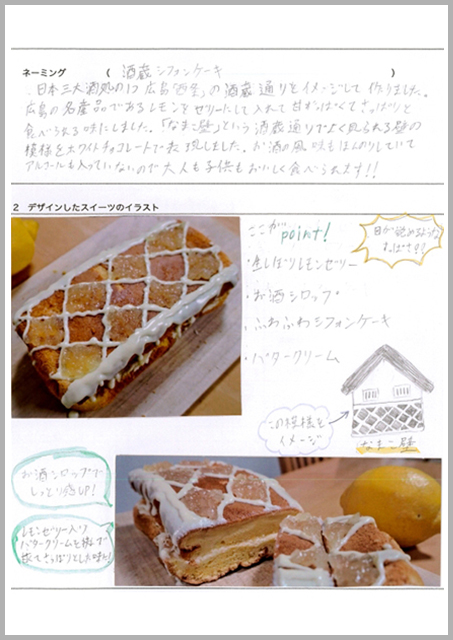 ネーミング ( 酒蔵シフォンケーキ )
日本三大酒処の1つ 広島「西条」の酒蔵通りをイメージして作りました。
広島の名産品であるレモンをゼリーにして入れて甘ずっぱくてさっぱりと
食べられる味にしました。「なまこ壁」という酒蔵通りでよく見られる壁の
模様をホワイトチョコレートで表現しました。お酒の風味もほんのりしていて
アルコールも入っていないので大人も子供もおいしく食べられます!!
2 デザインしたスイーツのイラスト
ここが point!
・生しぼりレモンゼリー
・お酒シロップ
・ふわふわシフォンケーキ
・バタークリーム
この模様を
イメージ
なまこ壁
お酒シロップで
しっとり感UP!
レモンゼリー入り
バタークリームを
さっぱりとした味に!